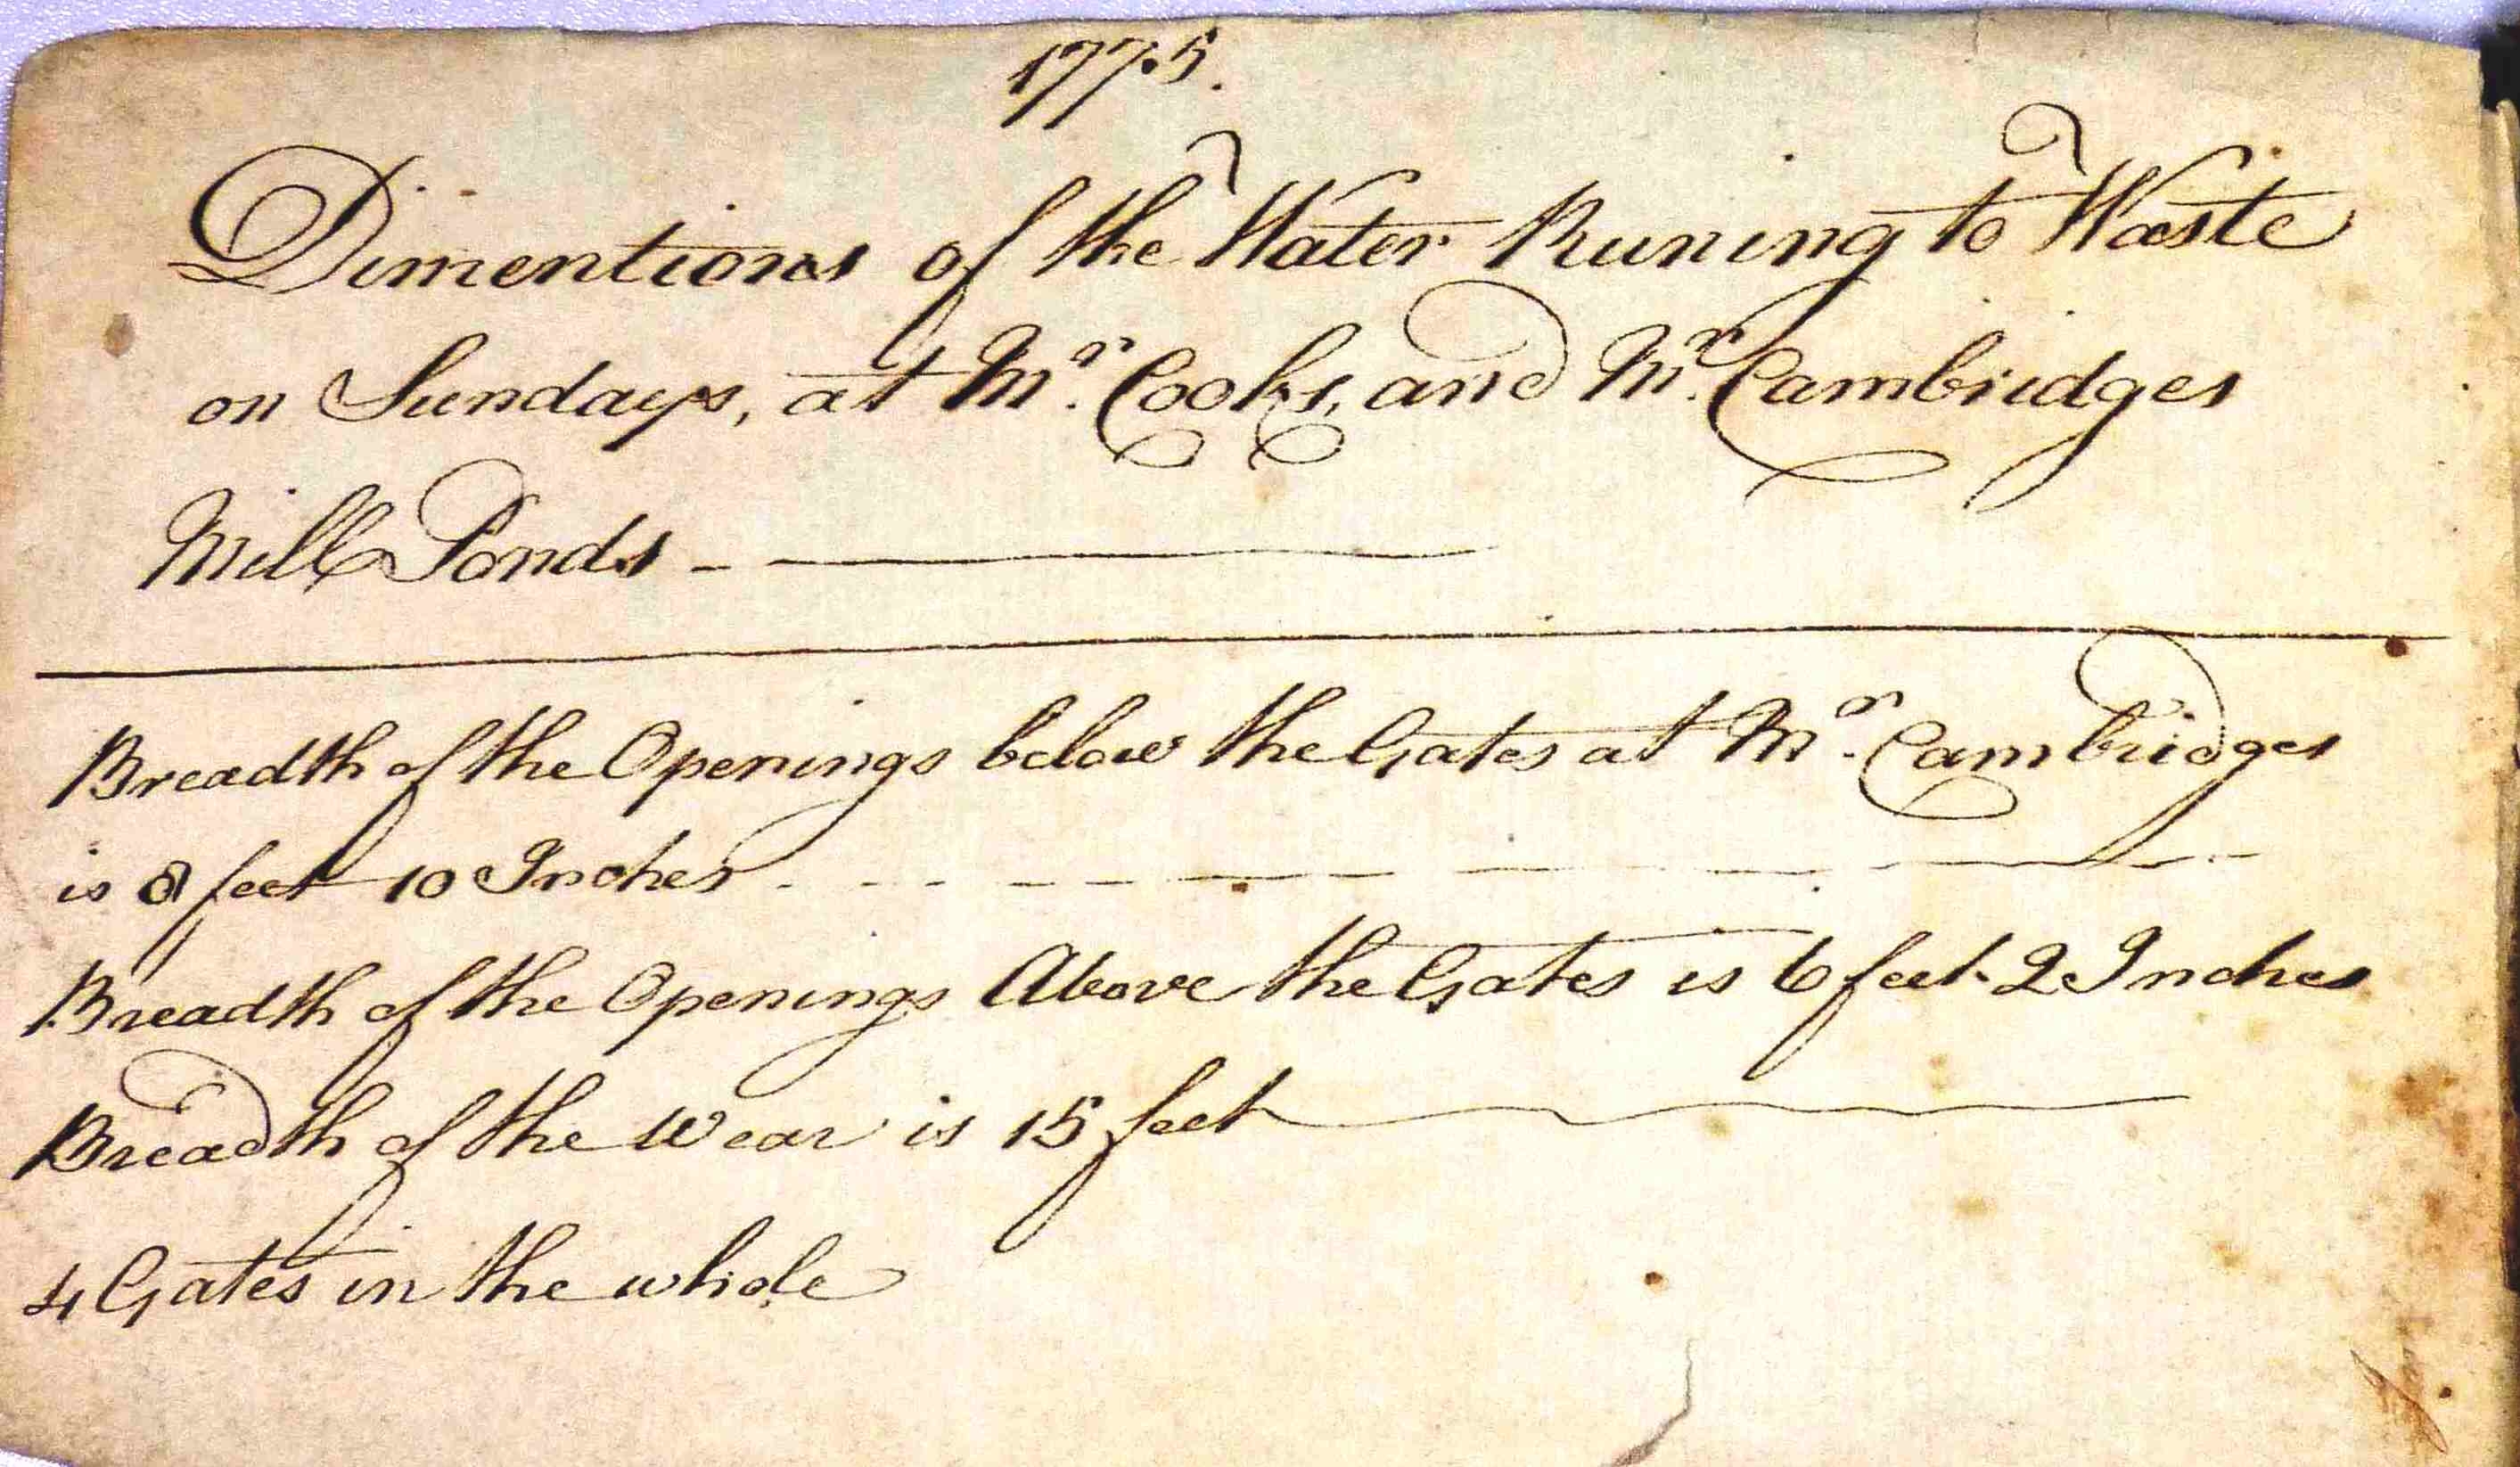 1775.
Dimentions of the Water Runing to Waste
on Sundays, at Mr. Cooks, and Mr. Cambridges
Mill Ponds - ———
Breadth of the Openings below the Gates at Mr. Cambridges
is 8 feet 10 Inches - - - - - - -
Breadth of the Openings Above the Gates is 6 feet 2 Inches
Breadth of the Wear is 15 feet ———
4 Gates in the whole